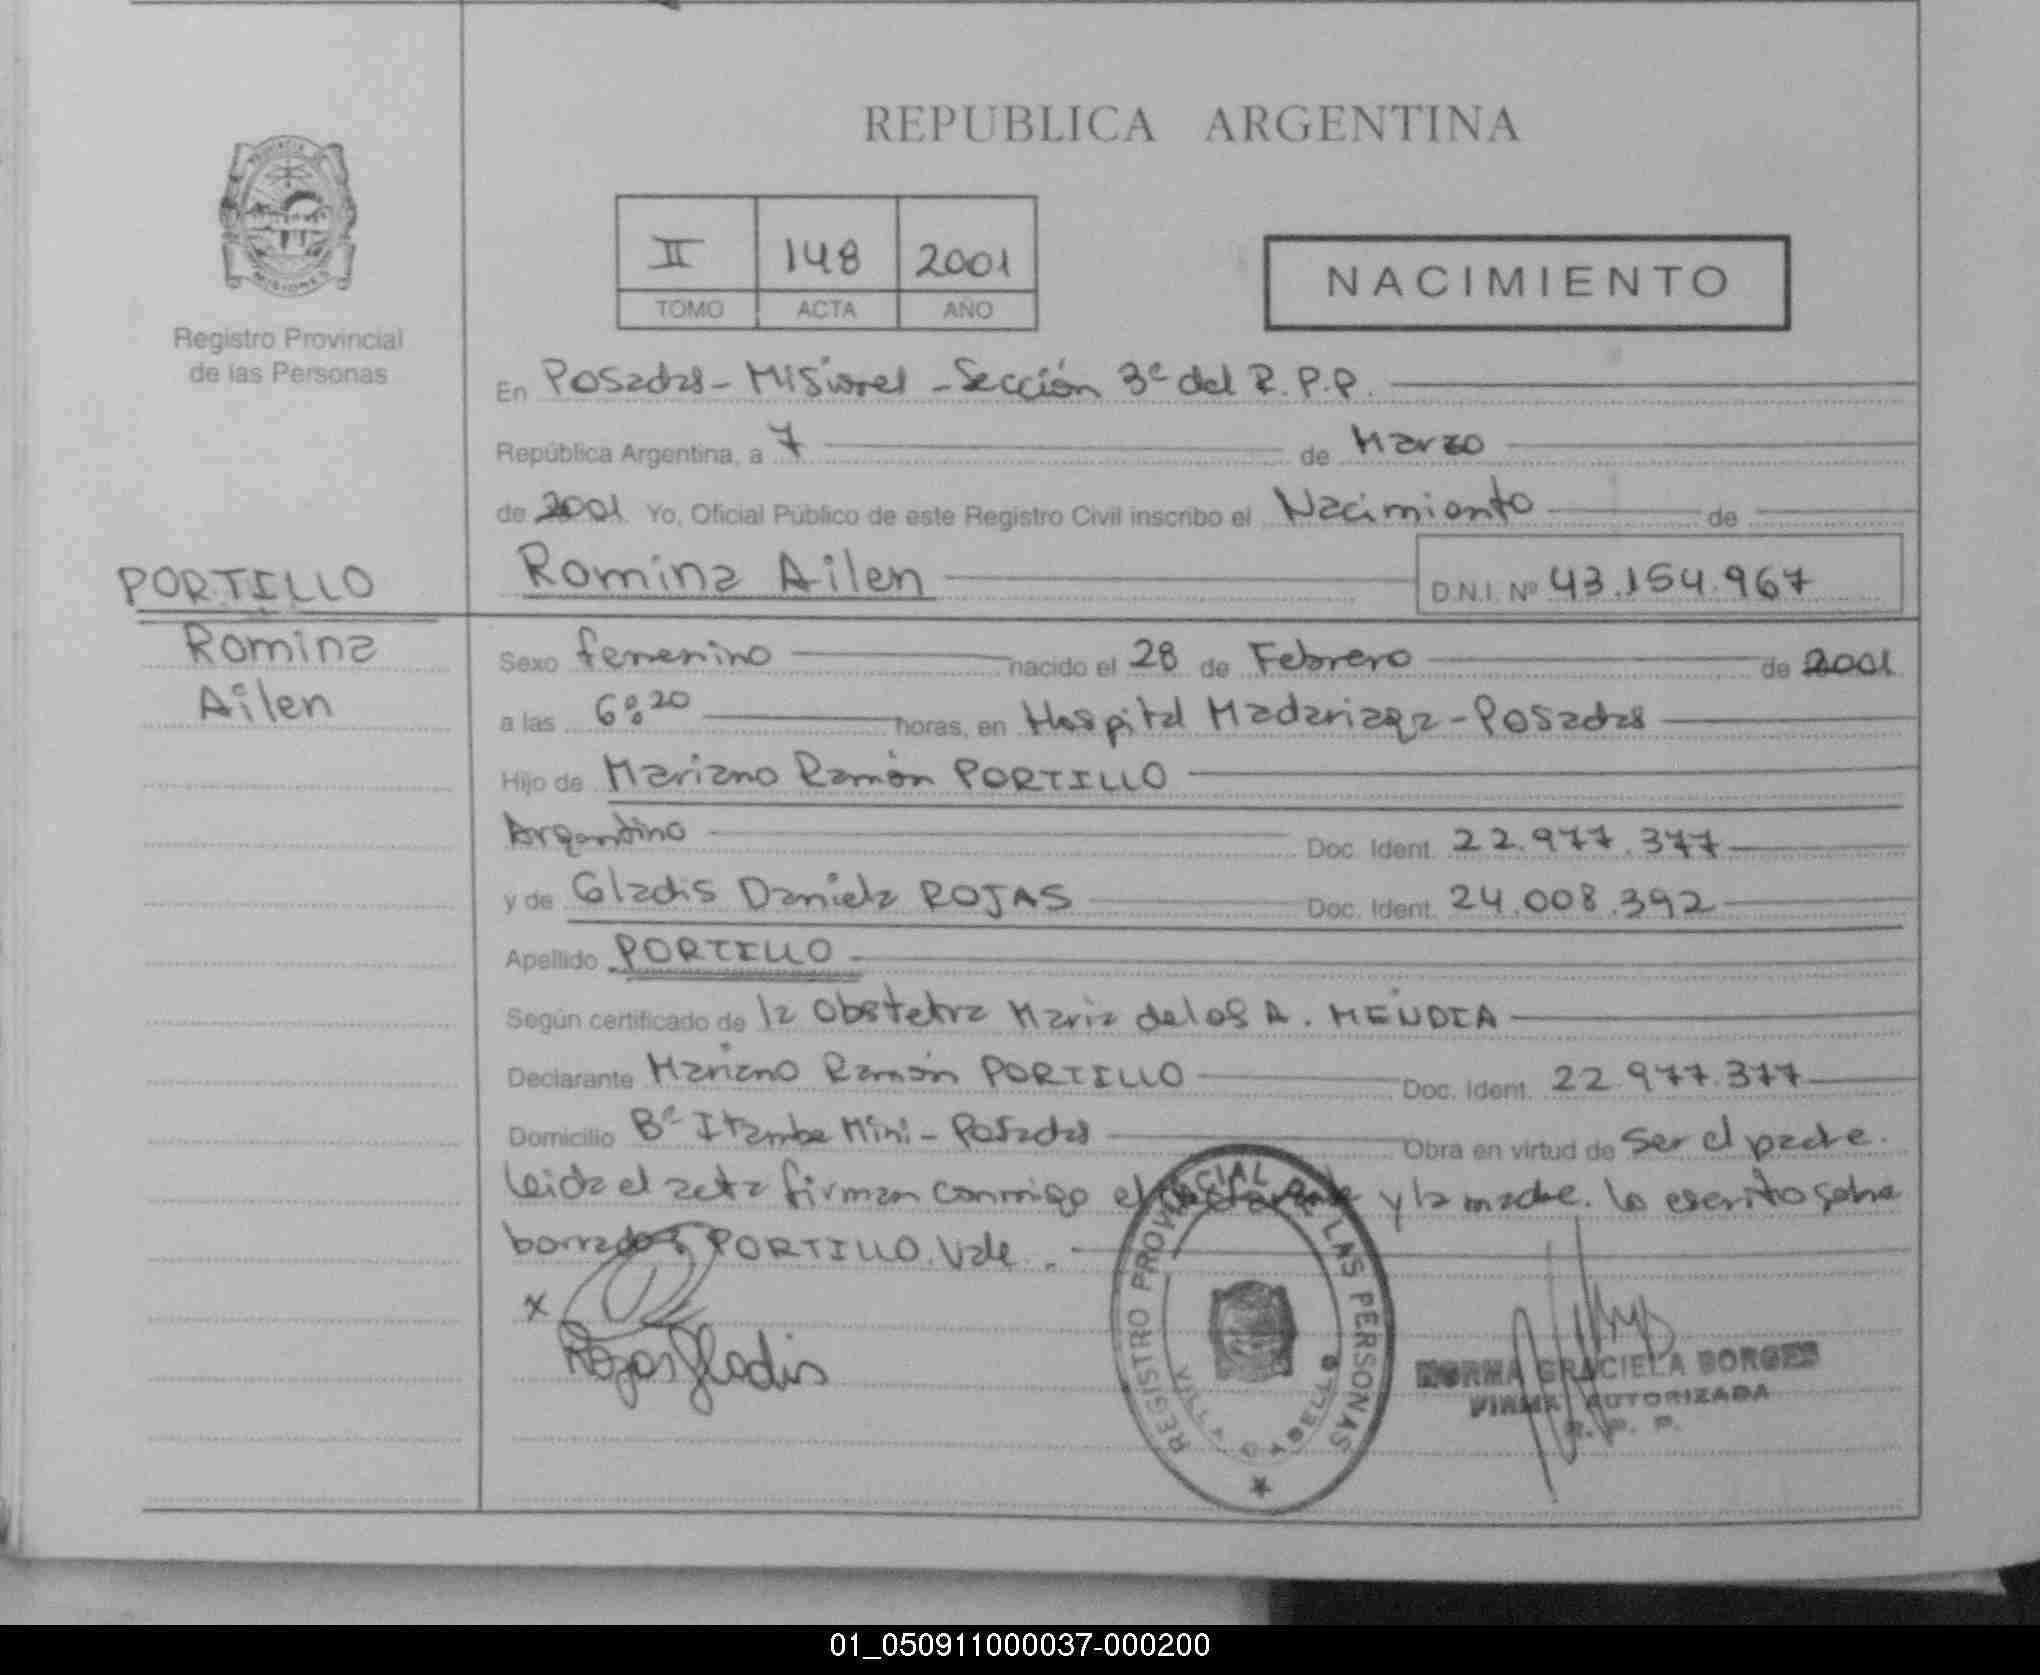 REPUBLICA ARGENTINA
PROVINCIA
MISIONES
Registro Provincial
de las Personas
II 148 2001
TOMO ACTA AÑO
NACIMIENTO
En Posadas - Misiones - Sección 3ª del R.P.P.
República Argentina, a 7 de Marzo
de 2001 Yo, Oficial Público de este Registro Civil inscribo el Nacimiento de
Romina Ailen D.N.I. Nº 43.154.967
PORTILLO
Romina
Ailen
Sexo femenino nacido el 28 de Febrero de 2001
a las 6:20 horas, en Hospital Madariaga - Posadas
Hijo de Mariano Ramón PORTILLO
Argentino Doc. Ident. 22.977.377
y de Gladis Daniela ROJAS Doc. Ident. 24.008.392
Apellido PORTILLO
Según certificado de la Obstetra Maria de los A. MENDIA
Declarante Mariano Ramón PORTILLO Doc. Ident. 22.977.377
Domicilio Bº Itambe Mini - Posadas Obra en virtud de ser el padre.
Leida el acta firman conmigo el declarante y la madre. Lo escrito sobre
borrados PORTILLO. Vale.
x
Rojas Gladis
REGISTRO PROVINCIAL DE LAS PERSONAS
VILLA CABELLO
NORMA GRACIELA BORGES
FIRMA AUTORIZADA
R. P. P.
01_050911000037-000200